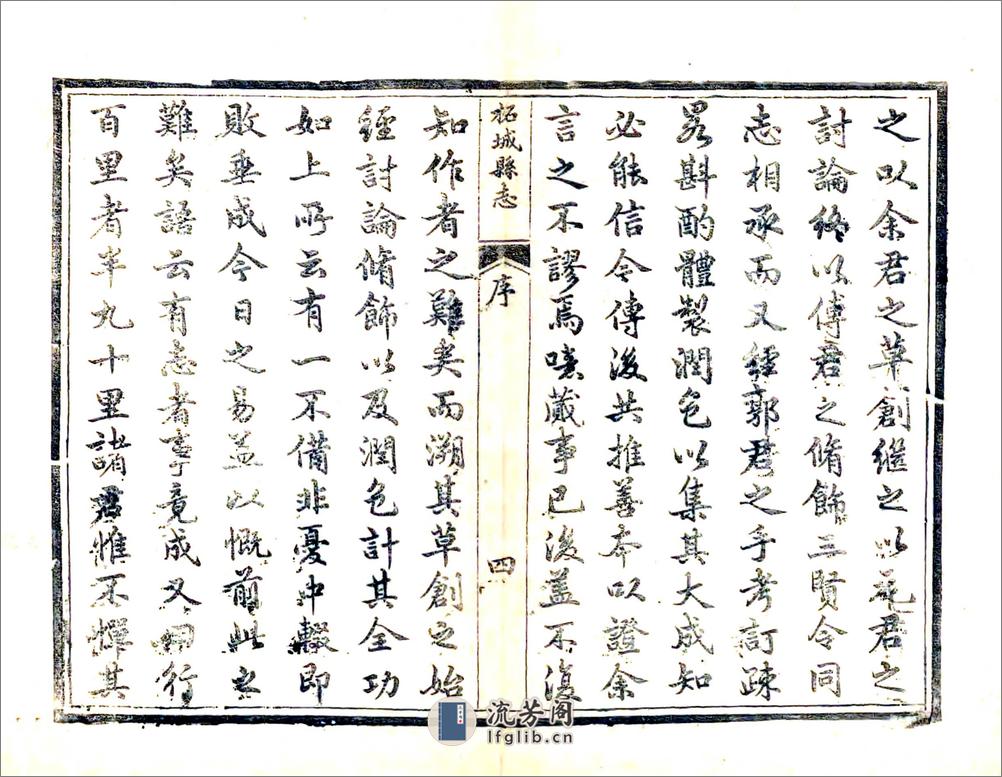 之以余君之草創繼之以元君之
討論終以傅君之脩飾三賢令同
志相承而又經郭君之手考訂疎
畧斟酌體製潤色以集其大成知
必能信今傳後共推善本以證余
言之不謬焉嘻蕆事已後盖不復
柘城縣志
序
四
知作者之難矣而溯其草創之始
經討論脩飾以及潤色計其全功
如上所云有一不備非憂中輟即
敗垂成今日之易盖以慨前此之
難矣語云有志者事竟成又曰行
百里者半九十里諸君惟不憚其
流芳阁
lfglib.cn